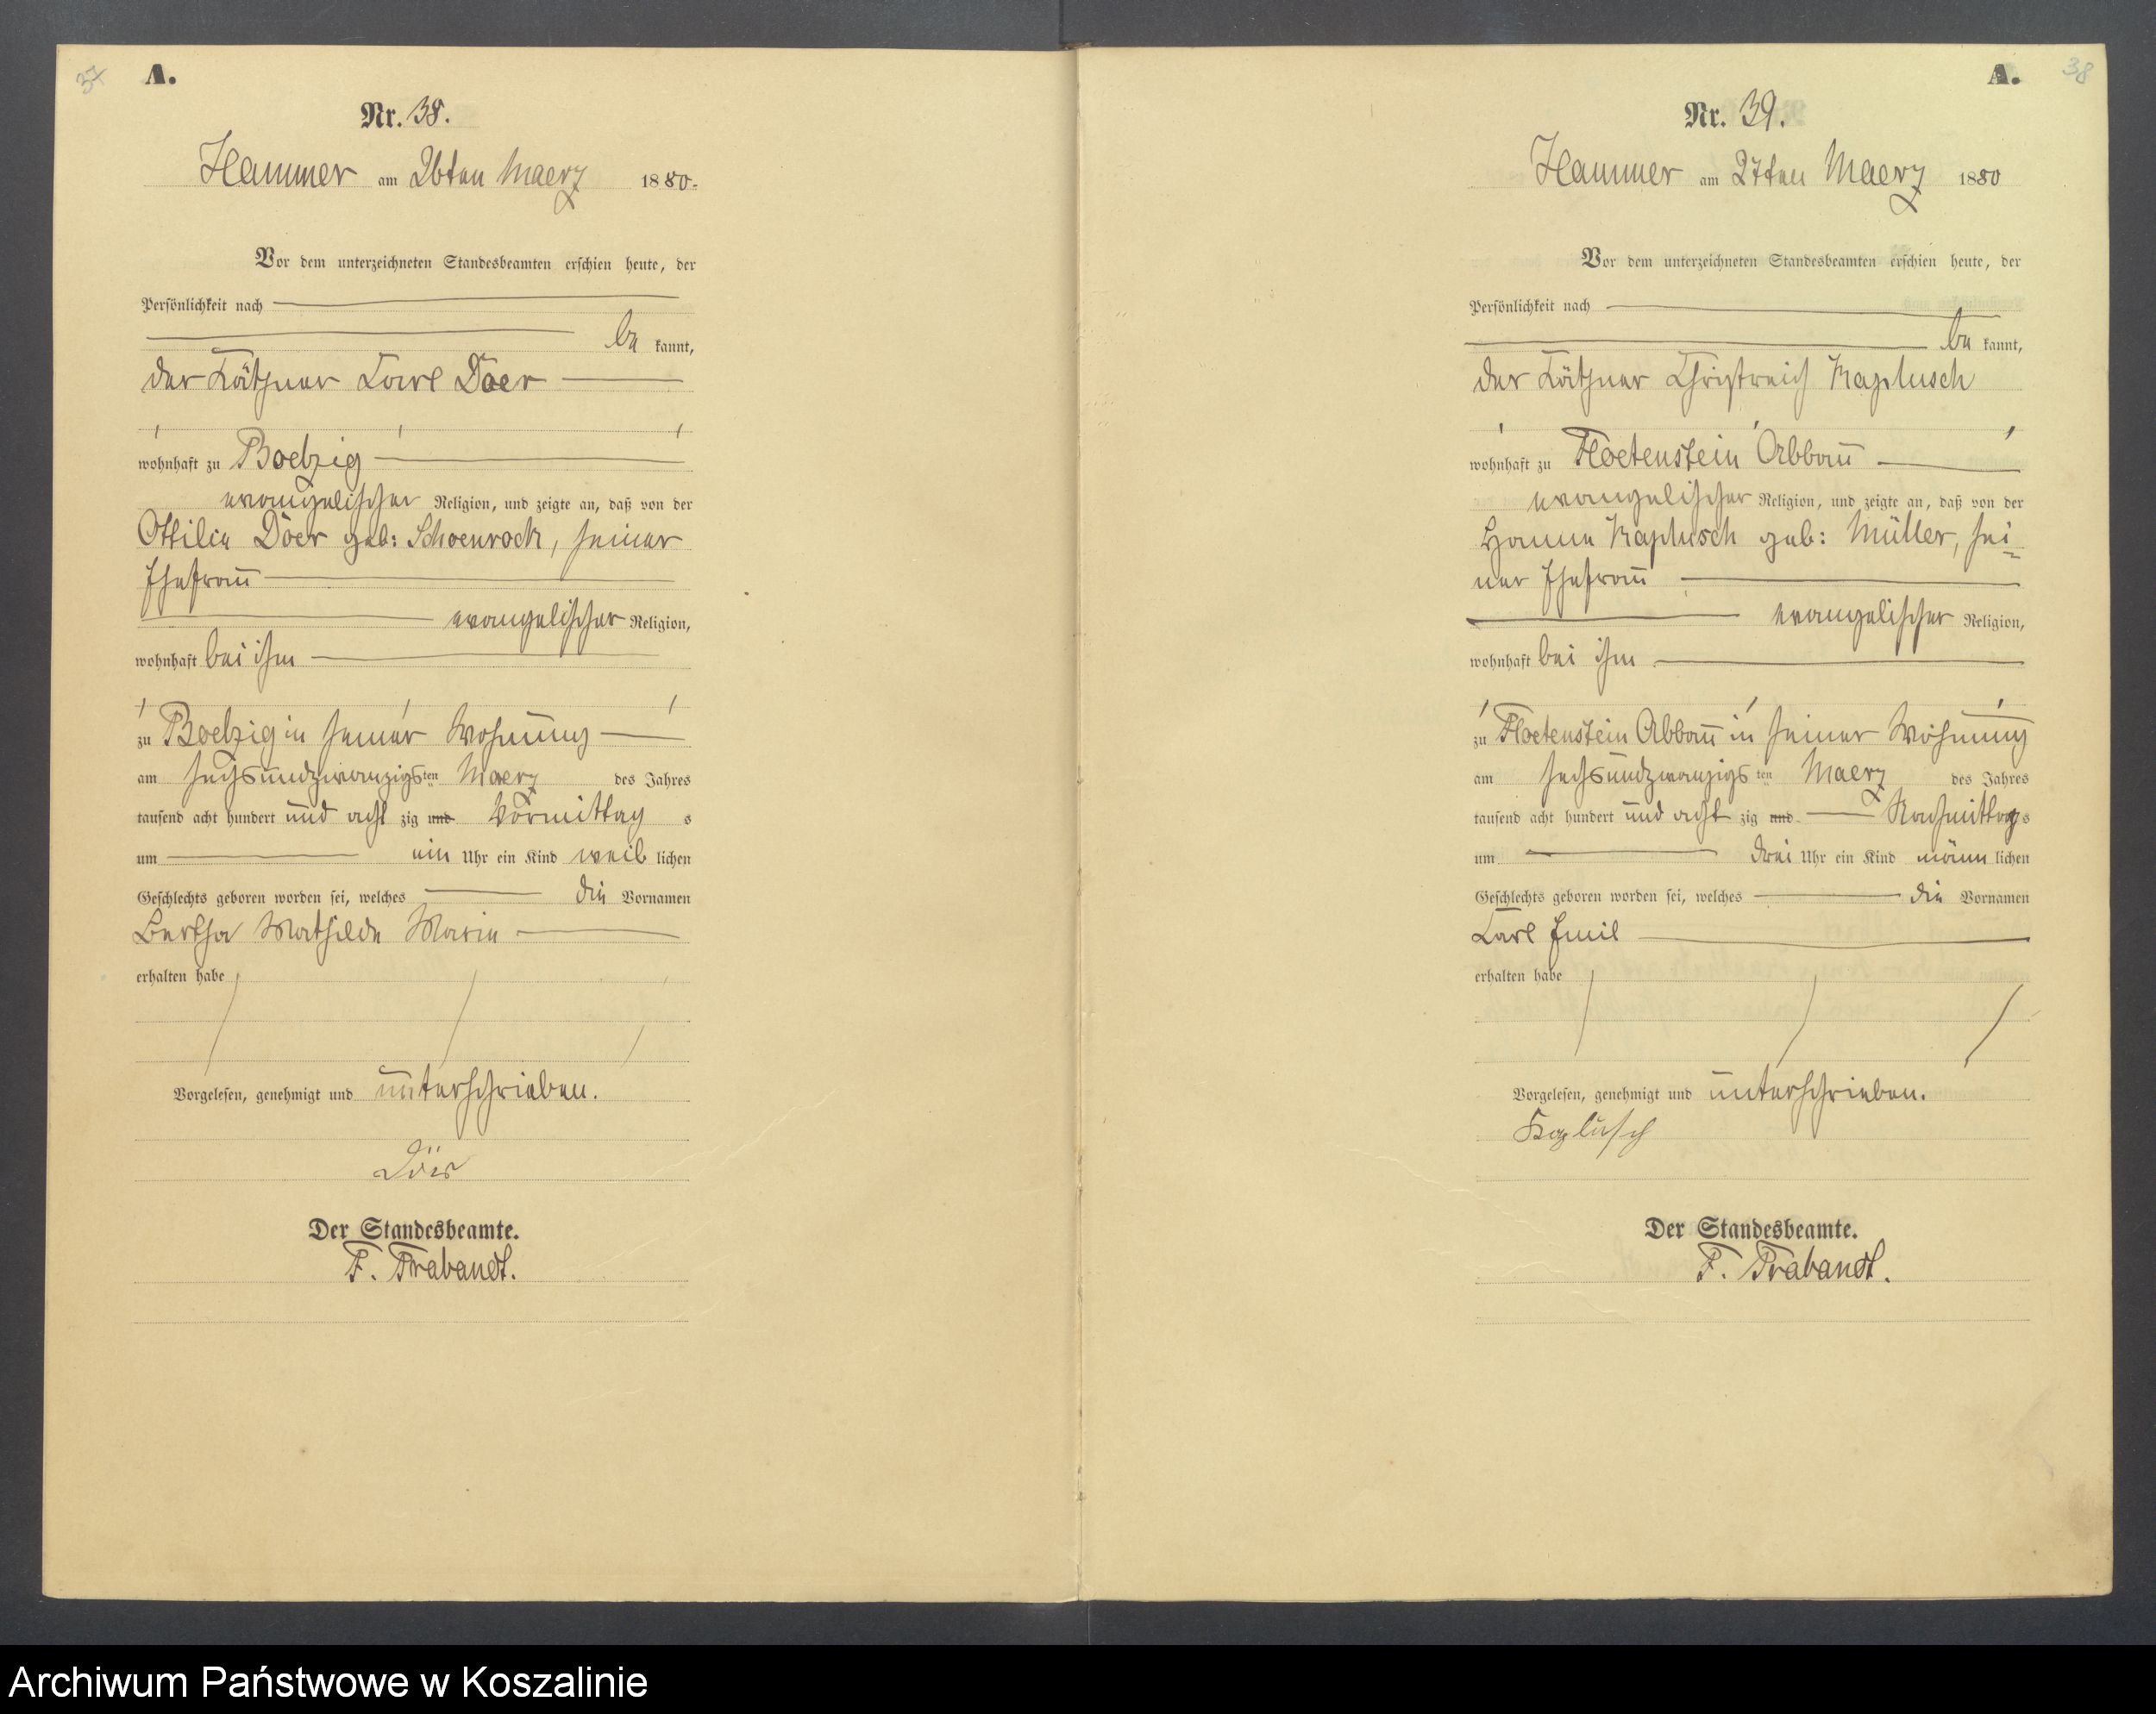 37
A.
Nr. 38.
Hammer am 26ten Maerz 1880.
Vor dem unterzeichneten Standesbeamten erschien heute, der
Persönlichkeit nach
be kannt,
der Käthner Carl Döer
wohnhaft zu Boelzig
evangelischer Religion, und zeigte an, daß von der
Ottilie Döer geb: Schoenrock, seiner
Ehefrau
evangelischer Religion,
wohnhaft bei ihm
zu Boelzig in seiner Wohnung
am sechsundzwanzigsten Maerz des Jahres
tausend acht hundert und acht zig und Vormittag s
um ein Uhr ein Kind weib lichen
Geschlechts geboren worden sei, welches die Vornamen
Bertha Mathilde Marie
erhalten habe
Vorgelesen, genehmigt und unterschrieben.
Döer
Der Standesbeamte.
F. Trabandt.
38
A.
Nr. 39.
Hammer am 27ten Maerz 1880
Vor dem unterzeichneten Standesbeamten erschien heute, der
Persönlichkeit nach
be kannt,
der Käthner Christreich Kaplusch
wohnhaft zu Floetenstein Abbau
evangelischer Religion, und zeigte an, daß von der
Hanne Kaplusch geb: Müller, sei=
ner Ehefrau
evangelischer Religion,
wohnhaft bei ihm
zu Floetenstein Abbau in seiner Wohnung
am sechsundzwanzigsten Maerz des Jahres
tausend acht hundert und acht zig und Nachmittags
um drei Uhr ein Kind männ lichen
Geschlechts geboren worden sei, welches die Vornamen
Carl Emil
erhalten habe
Vorgelesen, genehmigt und unterschrieben.
Kaplusch
Der Standesbeamte.
F. Trabandt.
Archiwum Państwowe w Koszalinie